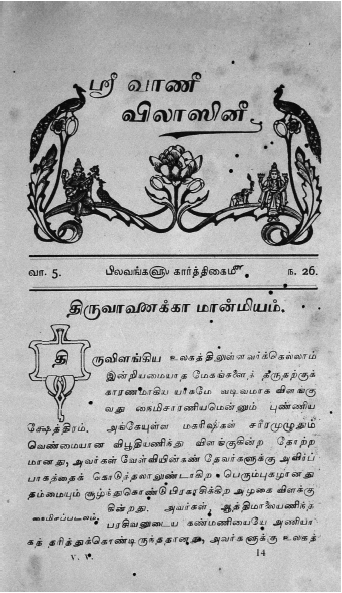 ஸ்ரீ வாணீ
விலாஸினீ
வா. 5. பிலவங்க௵ கார்த்திகைமீ ந. 26.
திருவாவனக்கா மான்மியம்.
திருவிளங்கிய உலகத்திலுள்ளவர்க்கெல்லாம்
இன்றியமையாத மேகங்களைத் தருதற்குக்
காரணமாகிய யாகமே வடிவமாக விளங்கு
வது நைமிசாரணியமென்னும் புண்ணிய
க்ஷேத்திரம். அங்கேயுள்ள மகரிஷிகள் சரீரமுழுதும்
வெண்மையான விபூதியணிந்து விளங்குகின்ற தோற்ற
மானது, அவர்கள் வேள்வியின்கண் தேவர்களுக்கு அவிர்ப்
பாகத்தைக் கொடுத்தலாலுண்டாகிற பெரும்புகழானது
தம்மையும் சூழ்ந்துகொண்டு பிரகாசிக்கிற அழகை விளக்கு
நைமிசப்படலம். கின்றது. அவர்கள், ஆத்திமாலையணிந்த
பரசிவனுடைய கண்மணியையே அணியா
கத் தரித்துக்கொண்டிருந்ததானது, அவர்களுக்கு உலகத்
V. V. 14